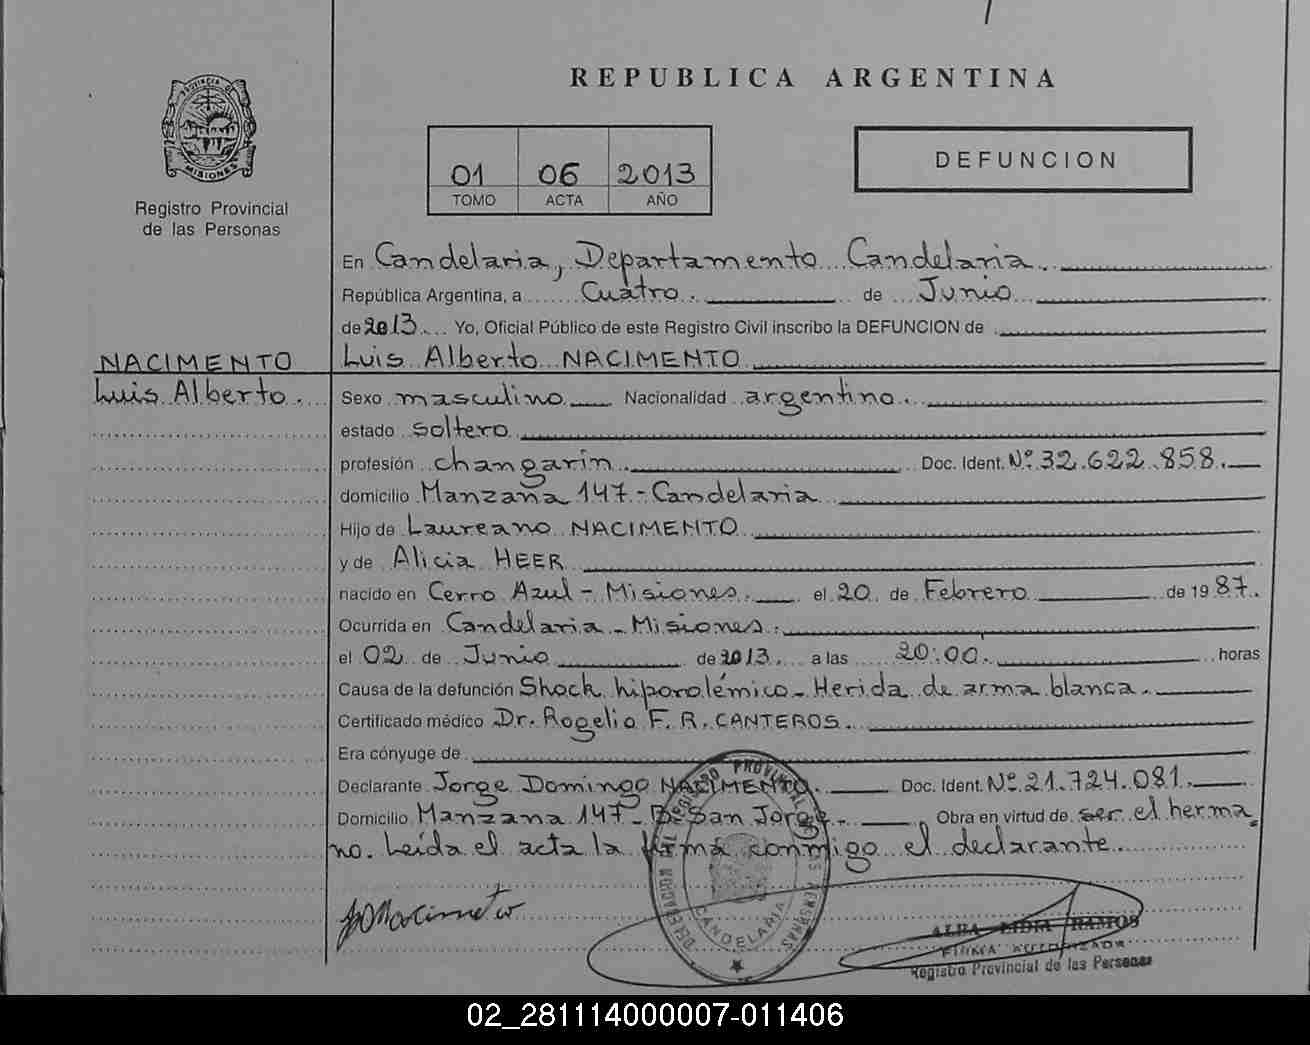 REPUBLICA ARGENTINA
PROVINCIA DE
MISIONES
Registro Provincial
de las Personas
01 06 2013
TOMO ACTA AÑO
DEFUNCION
En Candelaria, Departamento Candelaria.
República Argentina, a Cuatro. de Junio
de 2013 Yo, Oficial Público de este Registro Civil inscribo la DEFUNCION de
NACIMENTO
Luis Alberto.
Luis Alberto NACIMENTO
Sexo masculino Nacionalidad argentino.
estado soltero
profesión changarín. Doc. Ident. Nº 32.622.858.
domicilio Manzana 147 - Candelaria
Hijo de Laureano NACIMENTO
y de Alicia HEER
nacido en Cerro Azul - Misiones. el 20 de Febrero de 1987.
Ocurrida en Candelaria - Misiones.
el 02 de Junio de 2013 a las 20:00. horas
Causa de la defunción Shock hiporolémico - Herida de arma blanca.
Certificado médico Dr. Rogelio F. R. CANTEROS.
Era cónyuge de
Declarante Jorge Domingo NACIMENTO. Doc. Ident. Nº 21.724.081.
Domicilio Manzana 147 - Bº San Jorge - Obra en virtud de ser el herma
no. Leída el acta la firma conmigo el declarante.
DELEGACION DEL REGISTRO PROVINCIAL DE LAS PERSONAS
CANDELARIA
ALBA LIDIA RAMOS
FIRMA AUTORIZADA
Registro Provincial de las Personas
02_281114000007-011406